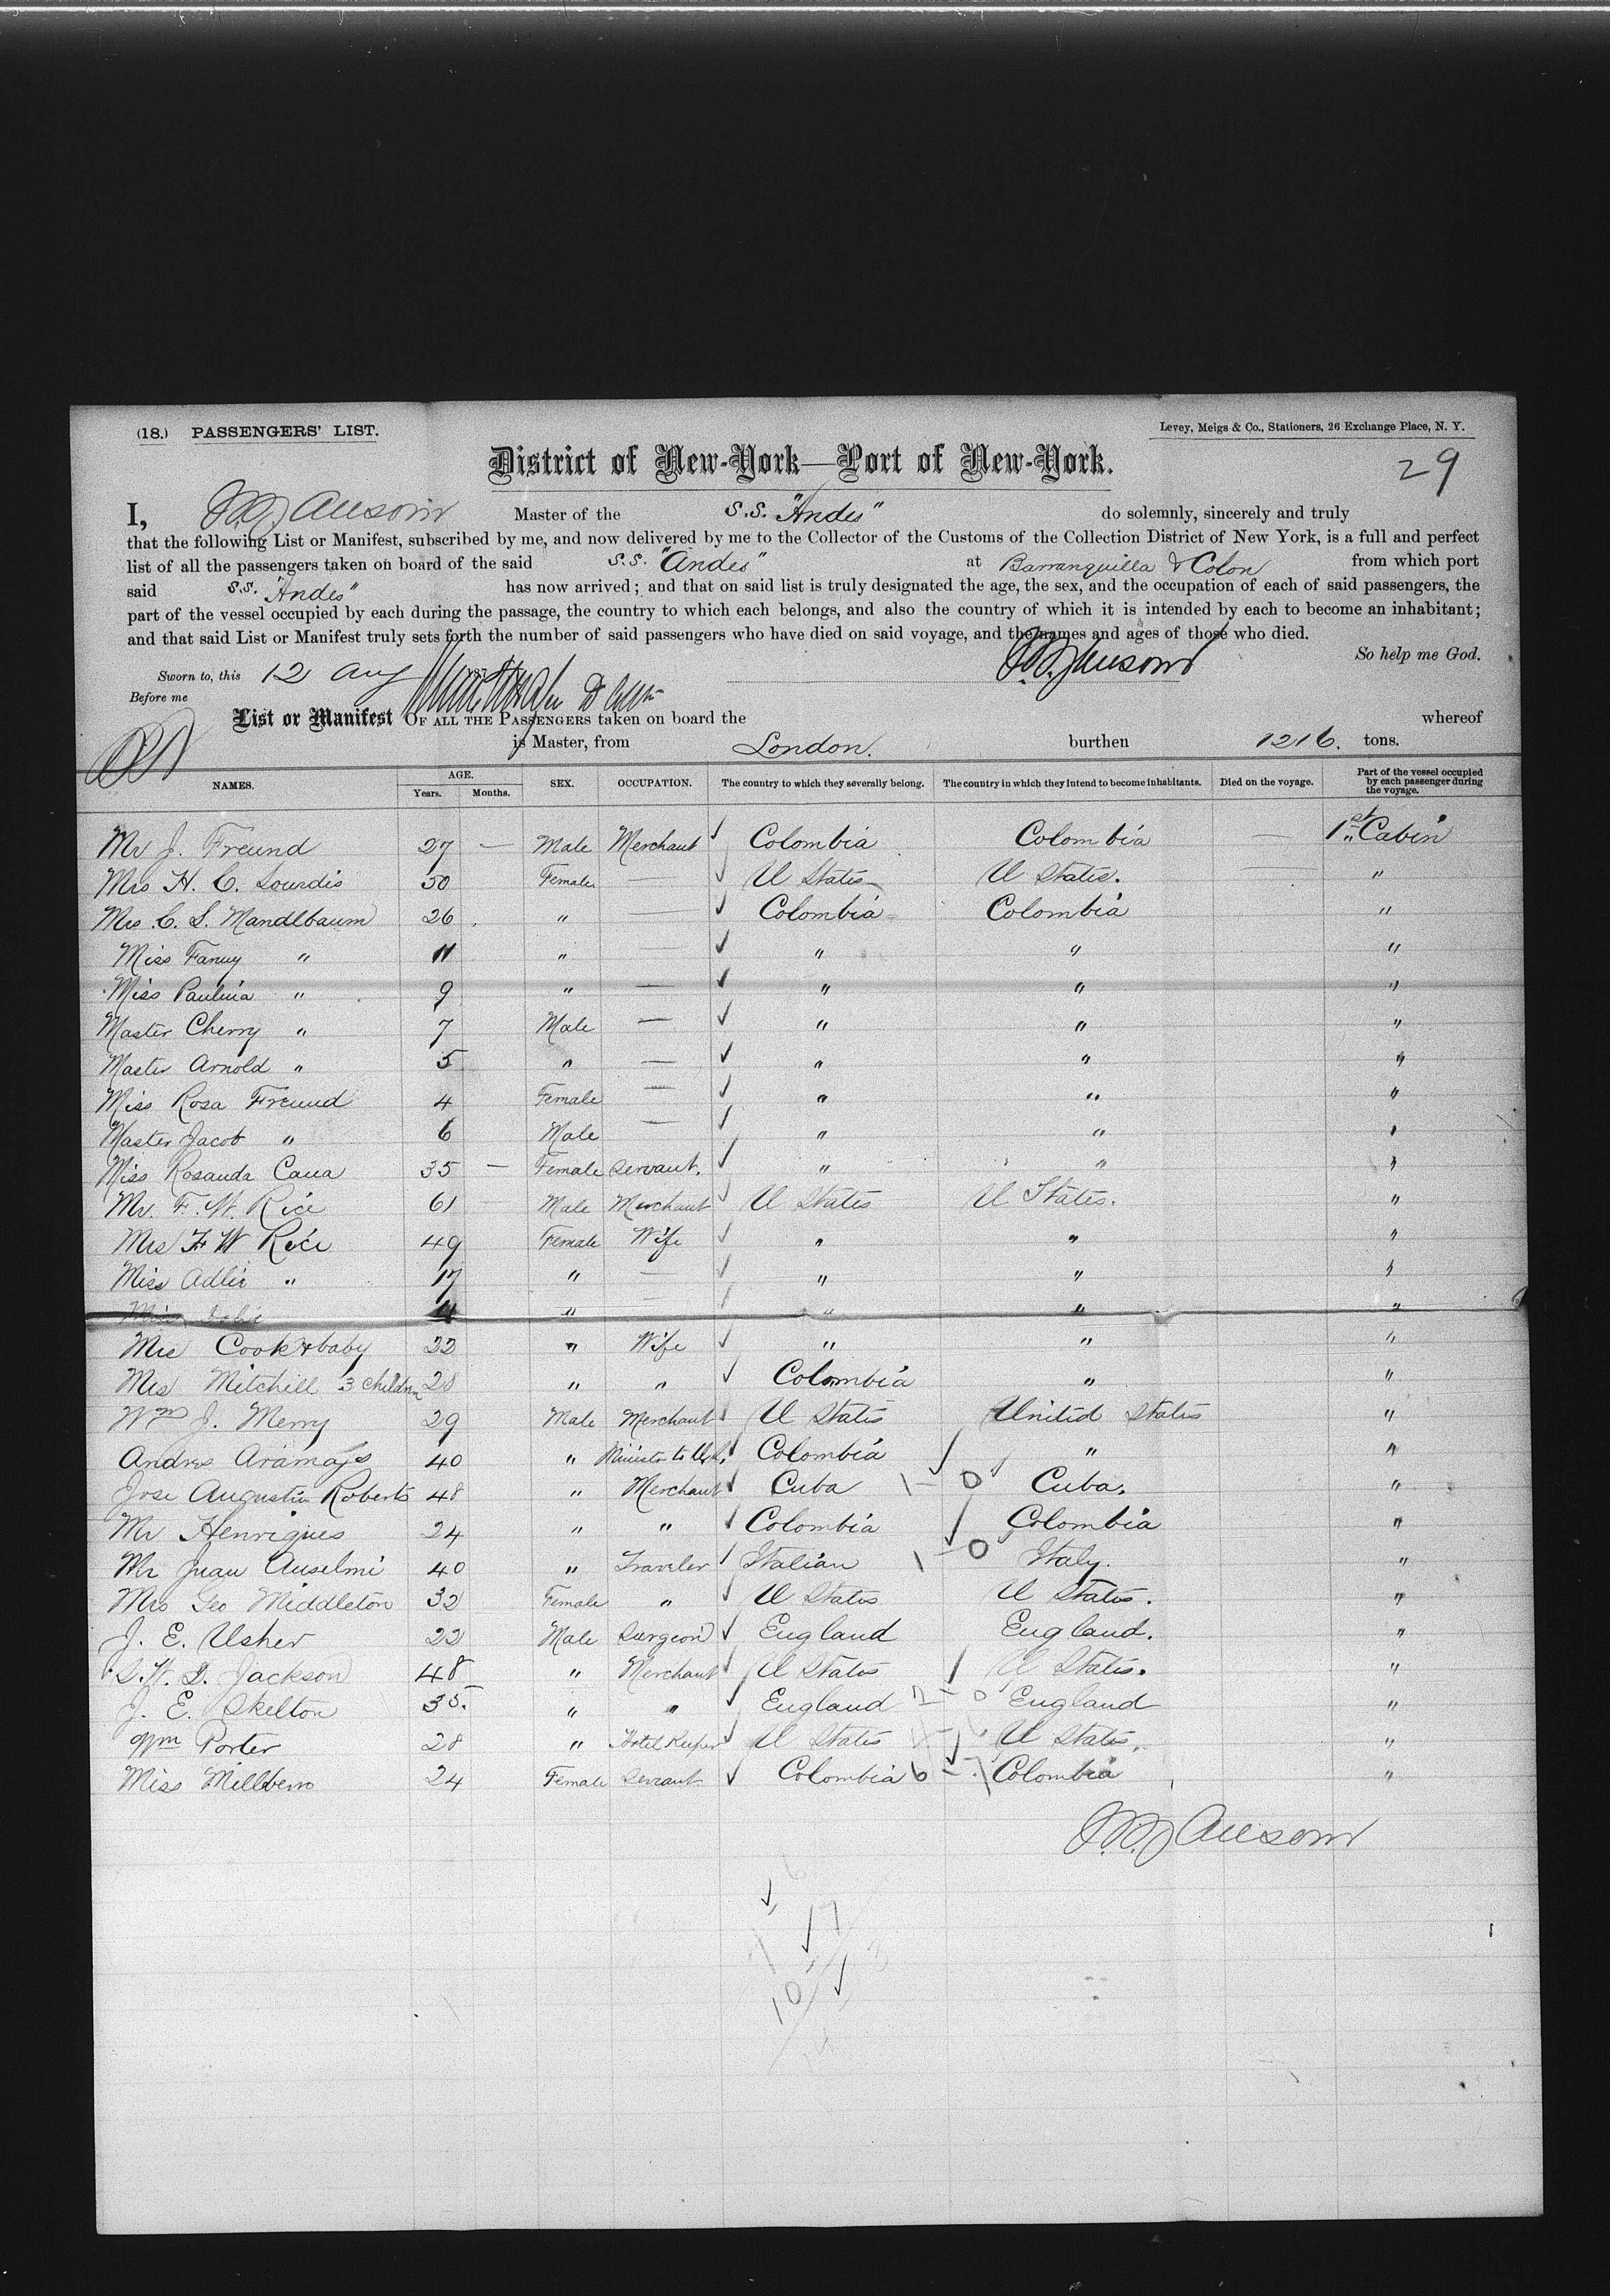 (18.) PASSENGERS' LIST.
Levey, Meigs & Co., Stationers, 26 Exchange Place, N. Y.
District of New-York—Port of New-York.
29
I, Master of the S.S. "Andes" do solemnly, sincerely and truly
that the following List or Manifest, subscribed by me, and now delivered by me to the Collector of the Customs of the Collection District of New York, is a full and perfect
list of all the passengers taken on board of the said S.S. "Andes" at Barranquilla & Colon from which port
said S.S. "Andes" has now arrived; and that on said list is truly designated the age, the sex, and the occupation of each of said passengers, the
part of the vessel occupied by each during the passage, the country to which each belongs, and also the country of which it is intended by each to become an inhabitant;
and that said List or Manifest truly sets forth the number of said passengers who have died on said voyage, and the names and ages of those who died.
So help me God.
Sworn to, this 12 Aug
Before me
List or Manifest OF ALL THE PASSENGERS taken on board the whereof
is Master, from London. burthen 1216. tons.
NAMES. AGE. Years. Months. SEX. OCCUPATION. The country to which they severally belong. The country in which they intend to become inhabitants. Died on the voyage. Part of the vessel occupied by each passenger during the voyage.
Mr J. Freund 27 — Male Merchant Colombia Colombia — 1st Cabin
Mrs H. C. Lourdis 50 Female — U States U States. — "
Mrs. C. S. Mandlbaum 26 " — Colombia Colombia "
Miss Fanny " 11 " — " " "
Miss Paulina " 9 " — " " "
Master Cherry " 7 Male — " " "
Master Arnold " 5 " — " " "
Miss Rosa Freund 4 Female — " " "
Master Jacob " 6 Male — " " "
Miss Rosanda Cana 35 — Female Servant. " " "
Mr. F. W. Rice 61 — Male Merchant U States U States. "
Mrs F W Rice 49 Female Wife " " "
Miss Adlie " 17 " — " " "
Miss 11 " — " " "
Mrs Cook & baby 22 " Wife " " "
Mrs Mitchill 3 children 28 " " Colombia " "
Wm J. Merry 29 Male Merchant U States United States "
Andres Aramajo 40 " Minister to Colombia " "
Jose Augustin Roberts 48 " Merchant Cuba 1 - 0 Cuba. "
Mr Henriques 24 " " Colombia Colombia "
Mr Juan Anselmi 40 " Traveler Italian 1 - 0 Italy. "
Mrs Geo Middleton 32 Female " U States U States. "
J. E. Usher 22 Male Surgeon England England. "
S. W. D. Jackson 48 " Merchant U States U States. "
J. E. Skelton 35. " " England 2 - 0 England "
Wm Porter 28 " Hotel Keeper U States U States. "
Miss Millbern 24 Female Servant Colombia 6 - 7 Colombia "
7
10